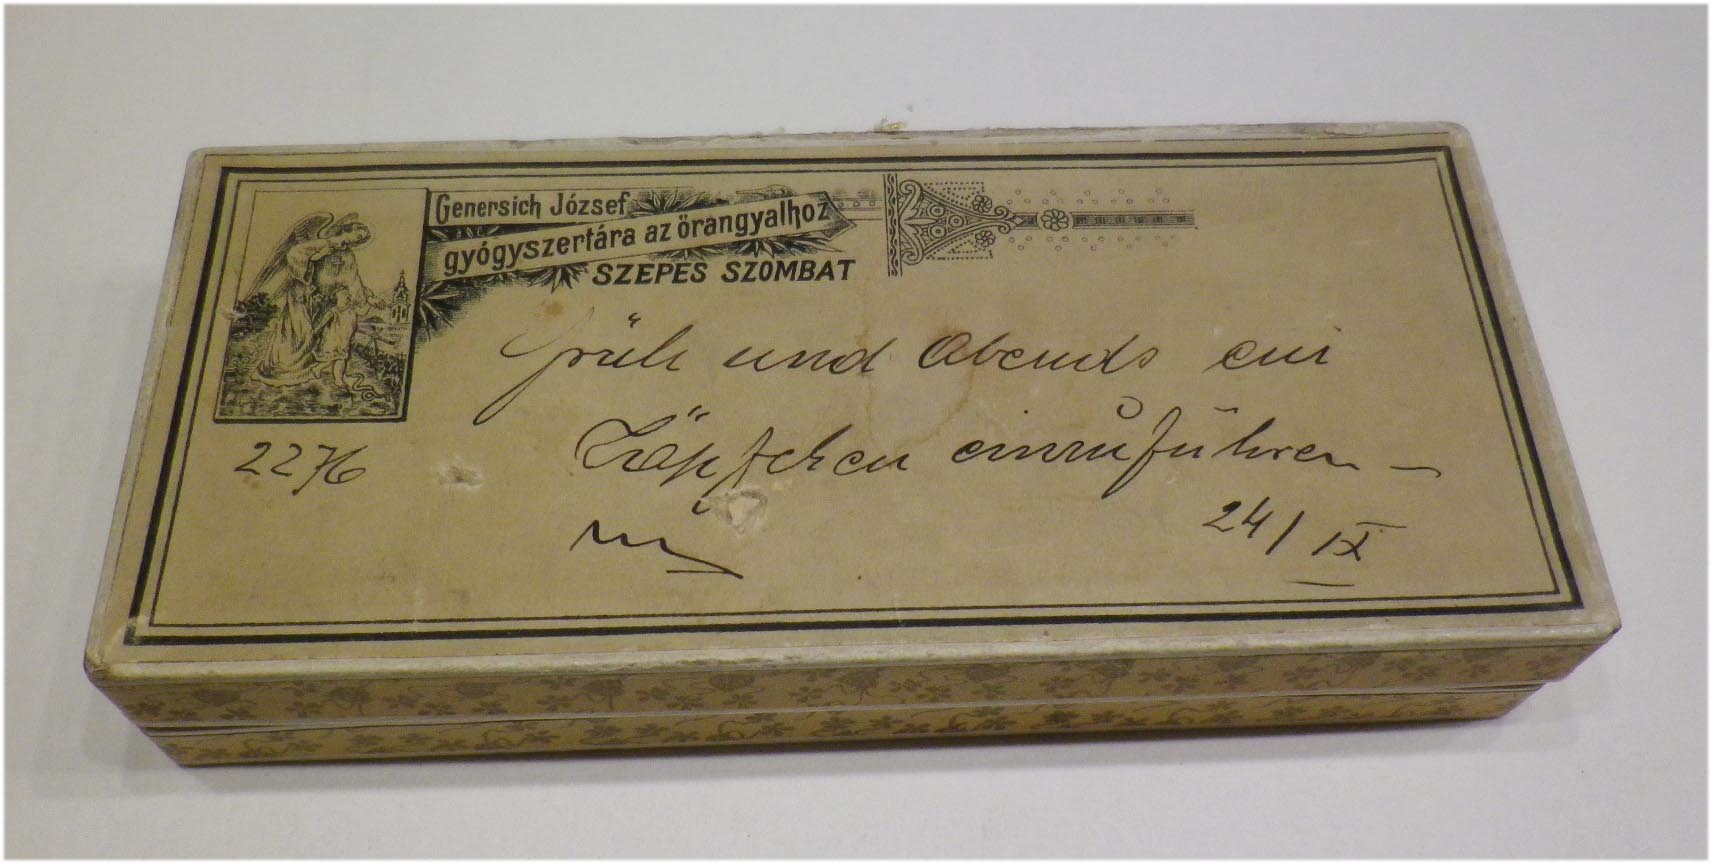 Genersich József
gyógyszertára az őrangyalhoz
SZEPES SZOMBAT
Früh und Abends ein
Zäpfchen einzuführen –
2276
24/IX